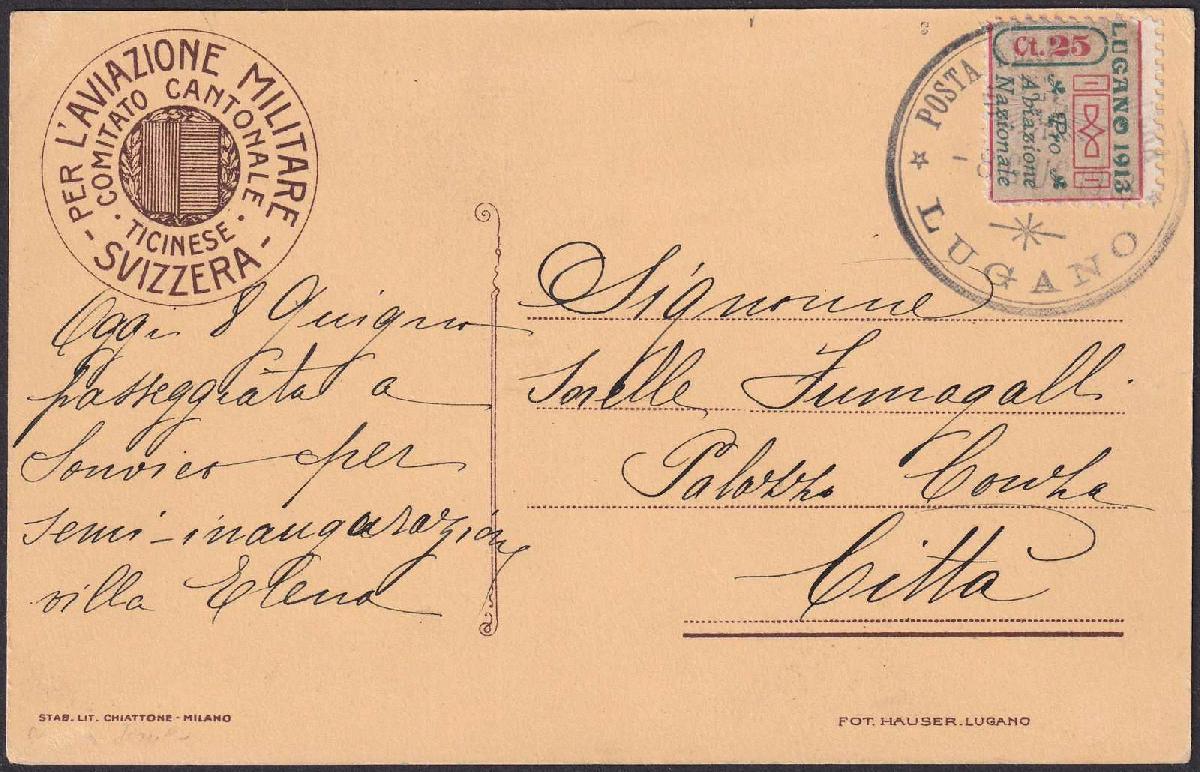 PER L'AVIAZIONE MILITARE
COMITATO CANTONALE
· TICINESE ·
- SVIZZERA -
POSTA
LUGANO
LUGANO 1913
Ct. 25
Pro
Aviazione
Nazionale
Oggi 8 Guigno
passeggiata a
Sonvico per
semi-inaugurazion
villa Elena
Signorine
Sorelle Fumagalli
Palazzo Conza
Città
STAB. LIT. CHIATTONE - MILANO
FOT. HAUSER. LUGANO